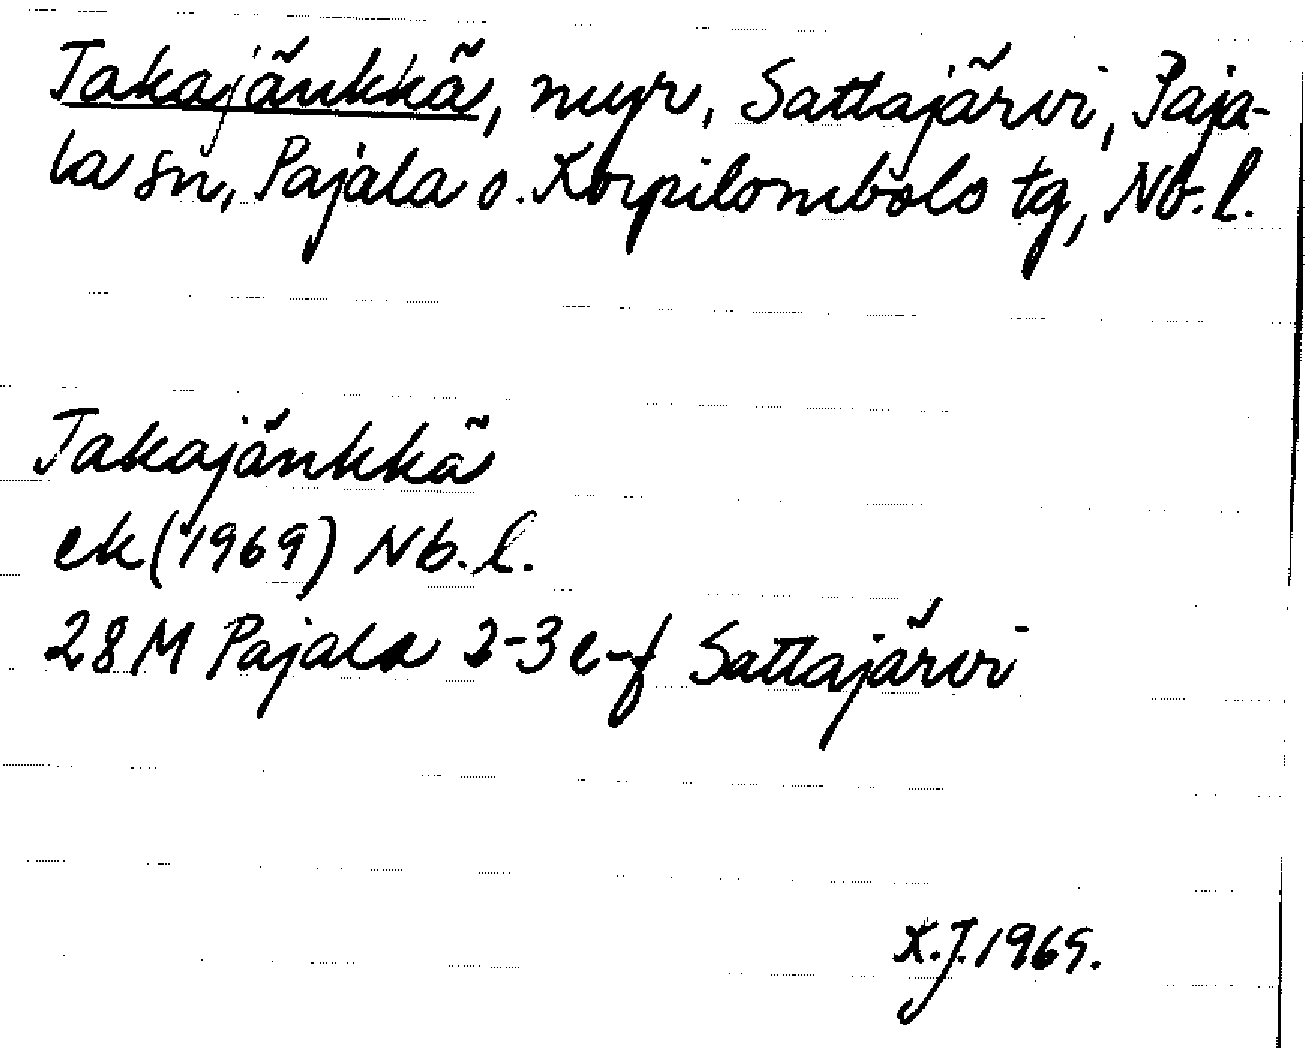 Takajänkkä, myr, Sattajärvi, Paja-
la sn, Pajala o. Korpilombolo tg, Nb.l.
Takajänkkä
ek (1969) Nb.l.
28M Pajala 2-3 e-f Sattajärvi
K.J. 1969.